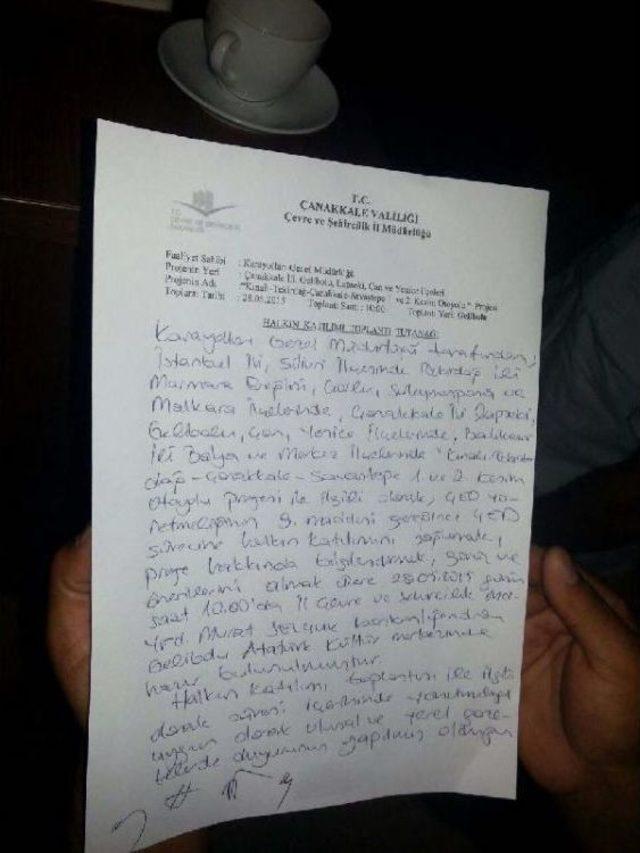 T.C.
ÇANAKKALE VALİLİĞİ
Çevre ve Şehircilik İl Müdürlüğü
Faaliyet Sahibi : Karayolları Genel Müdürlüğü
Projenin Yeri : Çanakkale İli, Gelibolu, Lapseki, Çan ve Yenice İlçeleri
Projenin Adı : "Kınalı-Tekirdağ-Çanakkale-Savaştepe ve 2. Kesim Otoyolu" Projesi
Toplantı Tarihi : 28.05.2015 Toplantı Saati : 10:00 Toplantı Yeri: Gelibolu
HALKIN KATILIMI TOPLANTI TUTANAĞI
Karayolları Genel Müdürlüğü tarafından,
İstanbul İli, Silivri İlçesinde Tekirdağ İli
Marmara Ereğlisi, Çorlu, Süleymanpaşa ve
Malkara İlçelerinde, Çanakkale İli Lapseki,
Gelibolu, Çan, Yenice İlçelerinde, Balıkesir
İli Balya ve Merkez İlçelerinde "Kınalı-Tekir
dağ-Çanakkale-Savaştepe 1. ve 2. Kesim
Otoyolu projesi ile ilgili olarak, ÇED Yö-
netmeliğinin 9. maddesi gereğince ÇED
sürecine halkın katılımını sağlamak,
proje hakkında bilgilendirmek, görüş ve
önerilerini almak üzere 28.05.2015 günü
saat 10.00'da İl Çevre ve Şehircilik
Yrd. Murat başkanlığında
Gelibolu Atatürk Kültür merkezinde
hazır bulunulmuştur.
Halkın Katılımı toplantısı ile ilgili
olarak süresi içerisinde yönetmeliğe
uygun olarak ulusal ve yerel gaze-
telerde duyurunun yapılmış olduğu